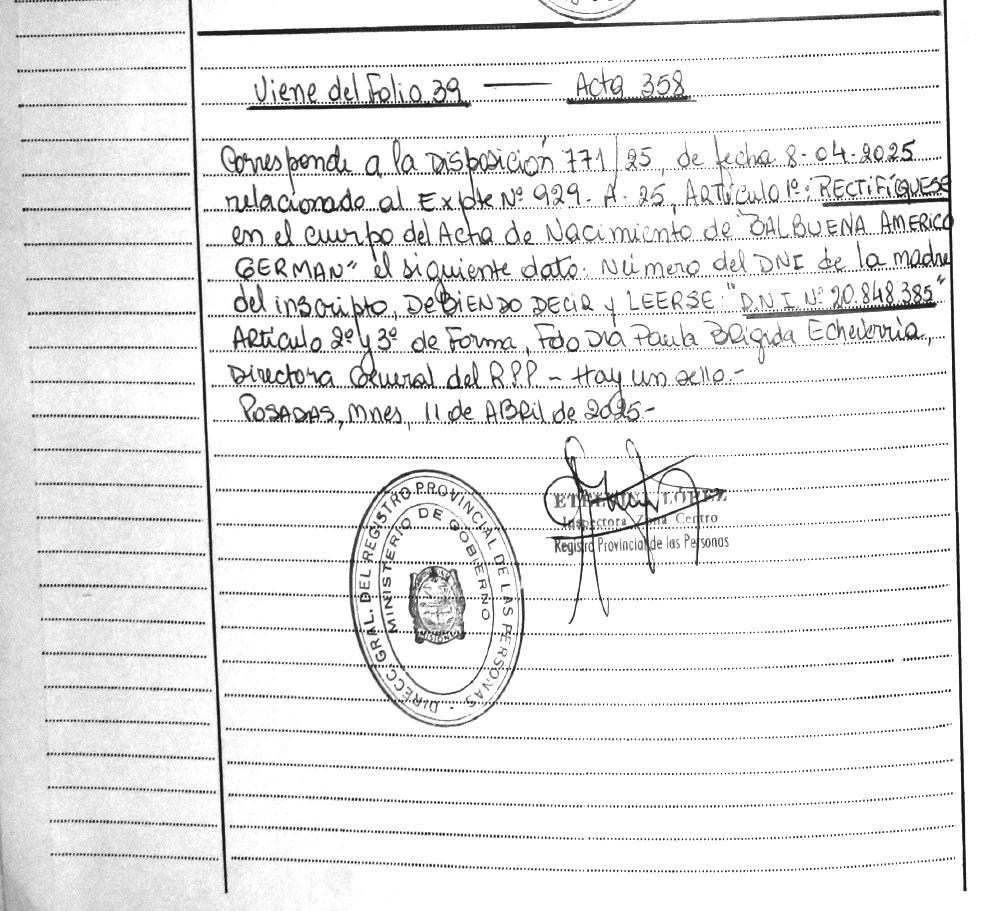 Viene del Folio 39 — Acta 358
Corresponde a la Disposición 771/25, de fecha 8-04-2025
relacionado al Expte Nº 929-A-25, Artículo 1º: RECTIFÍQUESE
en el cuerpo del Acta de Nacimiento de "BALBUENA AMERICO
GERMAN" el siguiente dato: Número del DNI de la madre
del inscripto, DEBIENDO DECIR y LEERSE: "D.N.I Nº 20.848.385"
Artículo 2º y 3º de Forma, Fdo Dra Paula Brigida Echeverria,
Directora General del R.P.P - Hay un sello.-
POSADAS, Mnes, 11 de ABRil de 2025.-
LOPEZ
Inspectora Zona Centro
Registro Provincial de las Personas
DIRECC. GRAL. DEL REGISTRO PROVINCIAL DE LAS PERSONAS -
MINISTERIO DE GOBIERNO
MISIONES